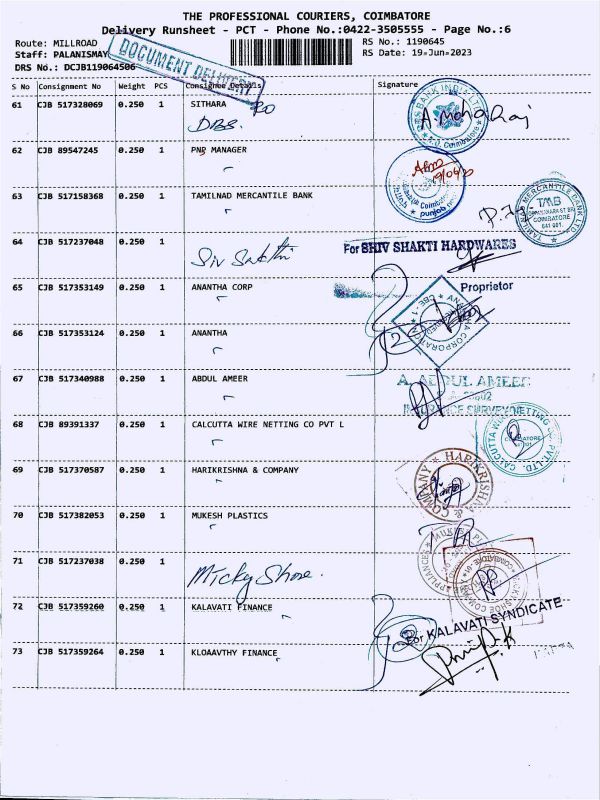 THE PROFESSIONAL COURIERS, COIMBATORE
Delivery Runsheet - PCT - Phone No.:0422-3505555 - Page No.:6
Route: MILLROAD RS No.: 1190645
Staff: PALANISMAY RS Date: 19-Jun-2023
DRS No.: DCJB119064506
DOCUMENT DELIVERY
S No Consignment No Weight PCS Consignee Details Signature
61 CJB 517328069 0.250 1 SITHARA
DBS. A. Mohan Raj
62 CJB 89547245 0.250 1 PNB MANAGER
63 CJB 517158368 0.250 1 TAMILNAD MERCANTILE BANK
TMB
COIMBATORE
641 001.
64 CJB 517237048 0.250 1
Siv Sakthi For SHIV SHAKTI HARDWARES
Proprietor
65 CJB 517353149 0.250 1 ANANTHA CORP
66 CJB 517353124 0.250 1 ANANTHA
67 CJB 517340988 0.250 1 ABDUL AMEER
A. ABDUL AMEER
INSURANCE SURVEY
68 CJB 89391337 0.250 1 CALCUTTA WIRE NETTING CO PVT L
CALCUTTA WIRE NETTING CO. PVT. LTD.
69 CJB 517370587 0.250 1 HARIKRISHNA & COMPANY
HARIKRISHNA & COMPANY
70 CJB 517382053 0.250 1 MUKESH PLASTICS
71 CJB 517237038 0.250 1
Micky Shoe.
72 CJB 517359260 0.250 1 KALAVATI FINANCE
For KALAVATI SYNDICATE
73 CJB 517359264 0.250 1 KLOAAVTHY FINANCE